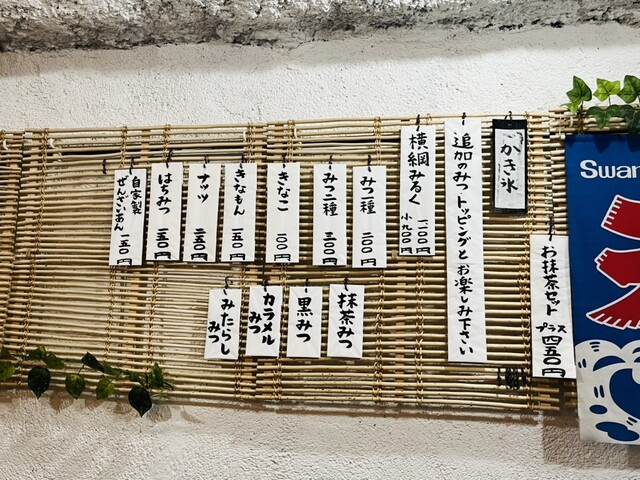 Swan
お抹茶セット プラス 四五〇円
かき氷
追加のみつトッピングとお楽しみ下さい
横綱みるく
一一〇〇円
小九〇〇円
みつ一種 二〇〇円
みつ二種 三〇〇円
きなこ 一〇〇円
きなもん 一五〇円
ナッツ 一五〇円
はちみつ 一五〇円
自家製
ぜんざいあん 一五〇円
抹茶みつ
黒みつ
カラメル
みつ
みたらし
みつ